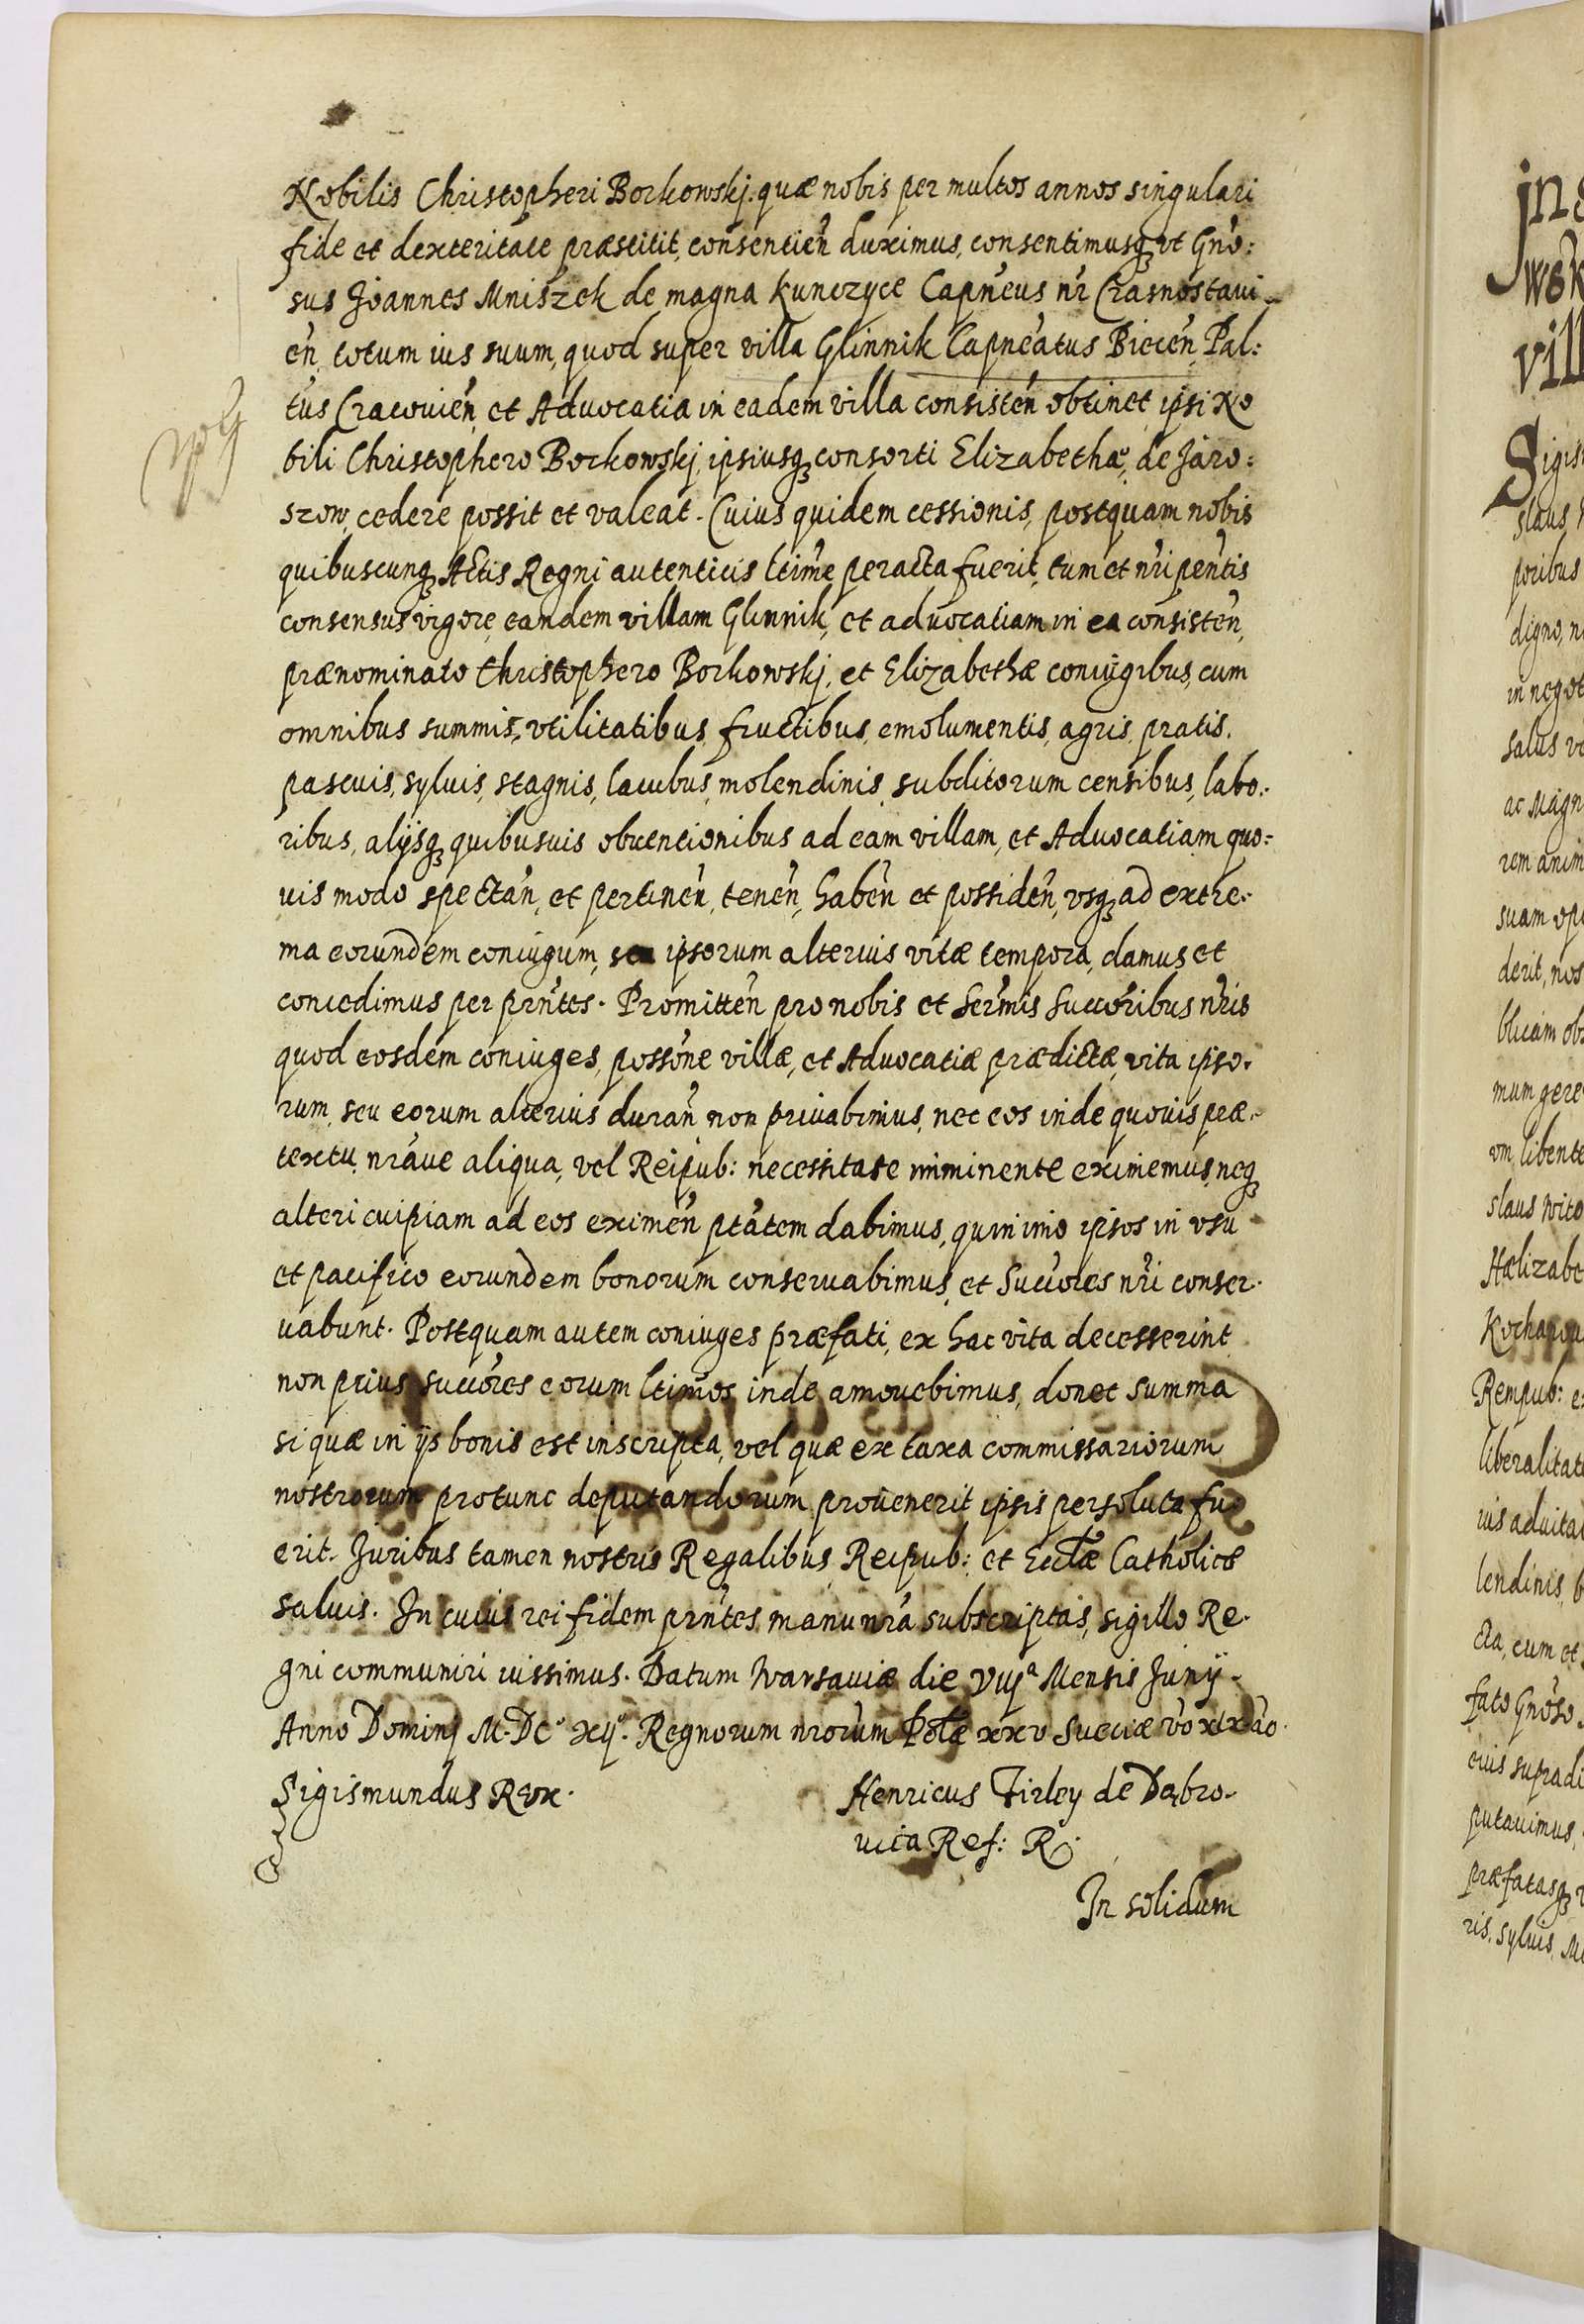 Nobilis Christopheri Borkowskj. quæ nobis per multos annos singulari
fide et dexteritate præstitit, consentień duximus, consentimusqꝫ vt Gńo:
sus Joannes Mniszek de magna Kunczyce Capńeus nr̃ Crasnostaui-
eń, totum ius suum, quod super villa Glinnik Capneátus Biecéń, Pal:
tús Cracouień, et Aduocatia in eadem villa consistéń obtinet, ipsi No
bili Christophero Borkowskj, ipsiusqꝫ consorti Elizabethæ, de Jaro:
szow, cedere possit et valeat. Cuius quidem cessionis, postquam nobis
quibuscunqꝫ Actis Regni autenticis ltim̃e peracta fuerit, tum et nr̃i pen̄tis
consensus vigore, eandem villam Glinnik, et aduocatiam in ea consistéń,
prænominato Christophero Borkowskj, et Elizabethæ coniugibus, cum
omnibus summis, vtilitatibus, fructibus, emolumentis, agris, pratis,
pascuis, syluis, stagnis, lacubus, molendinis, subditorum censibus, labo:
ribus, alijsqꝫ quibusuis obuentionibus ad eam villam, et Aduocatiam quo:
uis modo spectáń, et pertinéń, tenéń, habéń et possidéń, vsqꝫ ad extre:
ma eorundem coniugum, seu ipsorum alterius vitæ tempora, damus et
concedimus per prn̄tes. Promittéń pro nobis et Serm̃is Succoribus nr̃is
quod eosdem coniuges, possone villæ, et Aduocatiæ prædictæ, vita ipso.
rum, seu eorum alterius duráń non priuabimus, nec eos inde quouis præ.
textu, nráue aliqua, vel Reipub: necessitate imminente eximemus, neqꝫ
alteri cuipiam ad eos eximéń ptátem dabimus, quin imo ipsos in vsu
et pacifico eorundem bonorum conseruabimus, et Succores nr̃i conser.
uabunt. Postquam autem coniuges præfati, ex hac vita decesserint
non prius succores eorum ltim̃os inde amouebimus, donec summa
si quæ in ijs bonis est inscripta, vel quæ ex taxa commissariorum
nostrorum protunc deputandorum prouenerit ipsis persoluta fu
erit. Juribus tamen nostris Regalibus, Reipub: et Eccl̃æ Catholicæ
saluis. In cuius rei fidem prn̄tes manu nrá subscriptas, sigillo Re.
gni communiri iussimus. Datum Warsauiæ die Vijᵃ Mensis Junij.
Anno Dominj M.DCº xijº. Regnorum nrorum Pol̃æ xxv Sueciæ vo xix ao.
Sigismundus Rex.
Henricus Firley de Dąbro.
uica Ref: R.
In solidum